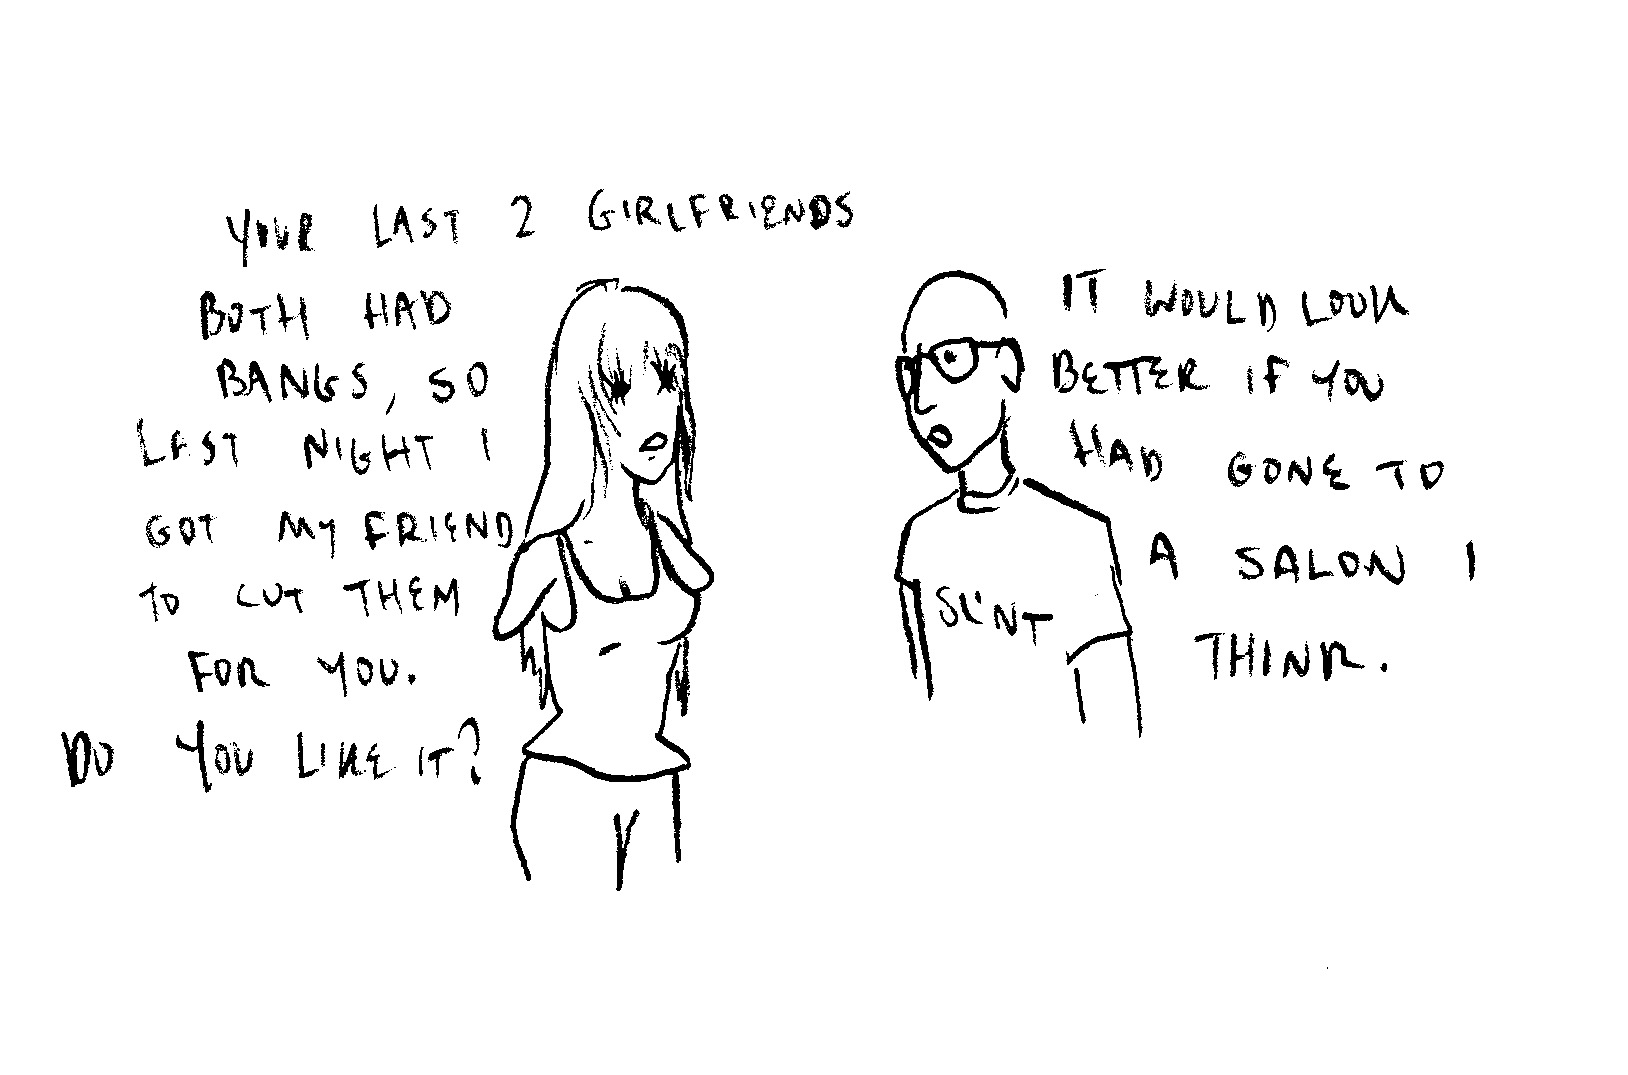 YOUR LAST 2 GIRLFRIENDS
BOTH HAD
BANGS, SO
LAST NIGHT I
GOT MY FRIEND
TO CUT THEM
FOR YOU.
DO YOU LIKE IT?
IT WOULD LOOK
BETTER IF YOU
HAD GONE TO
A SALON I
THINK.
SLINT